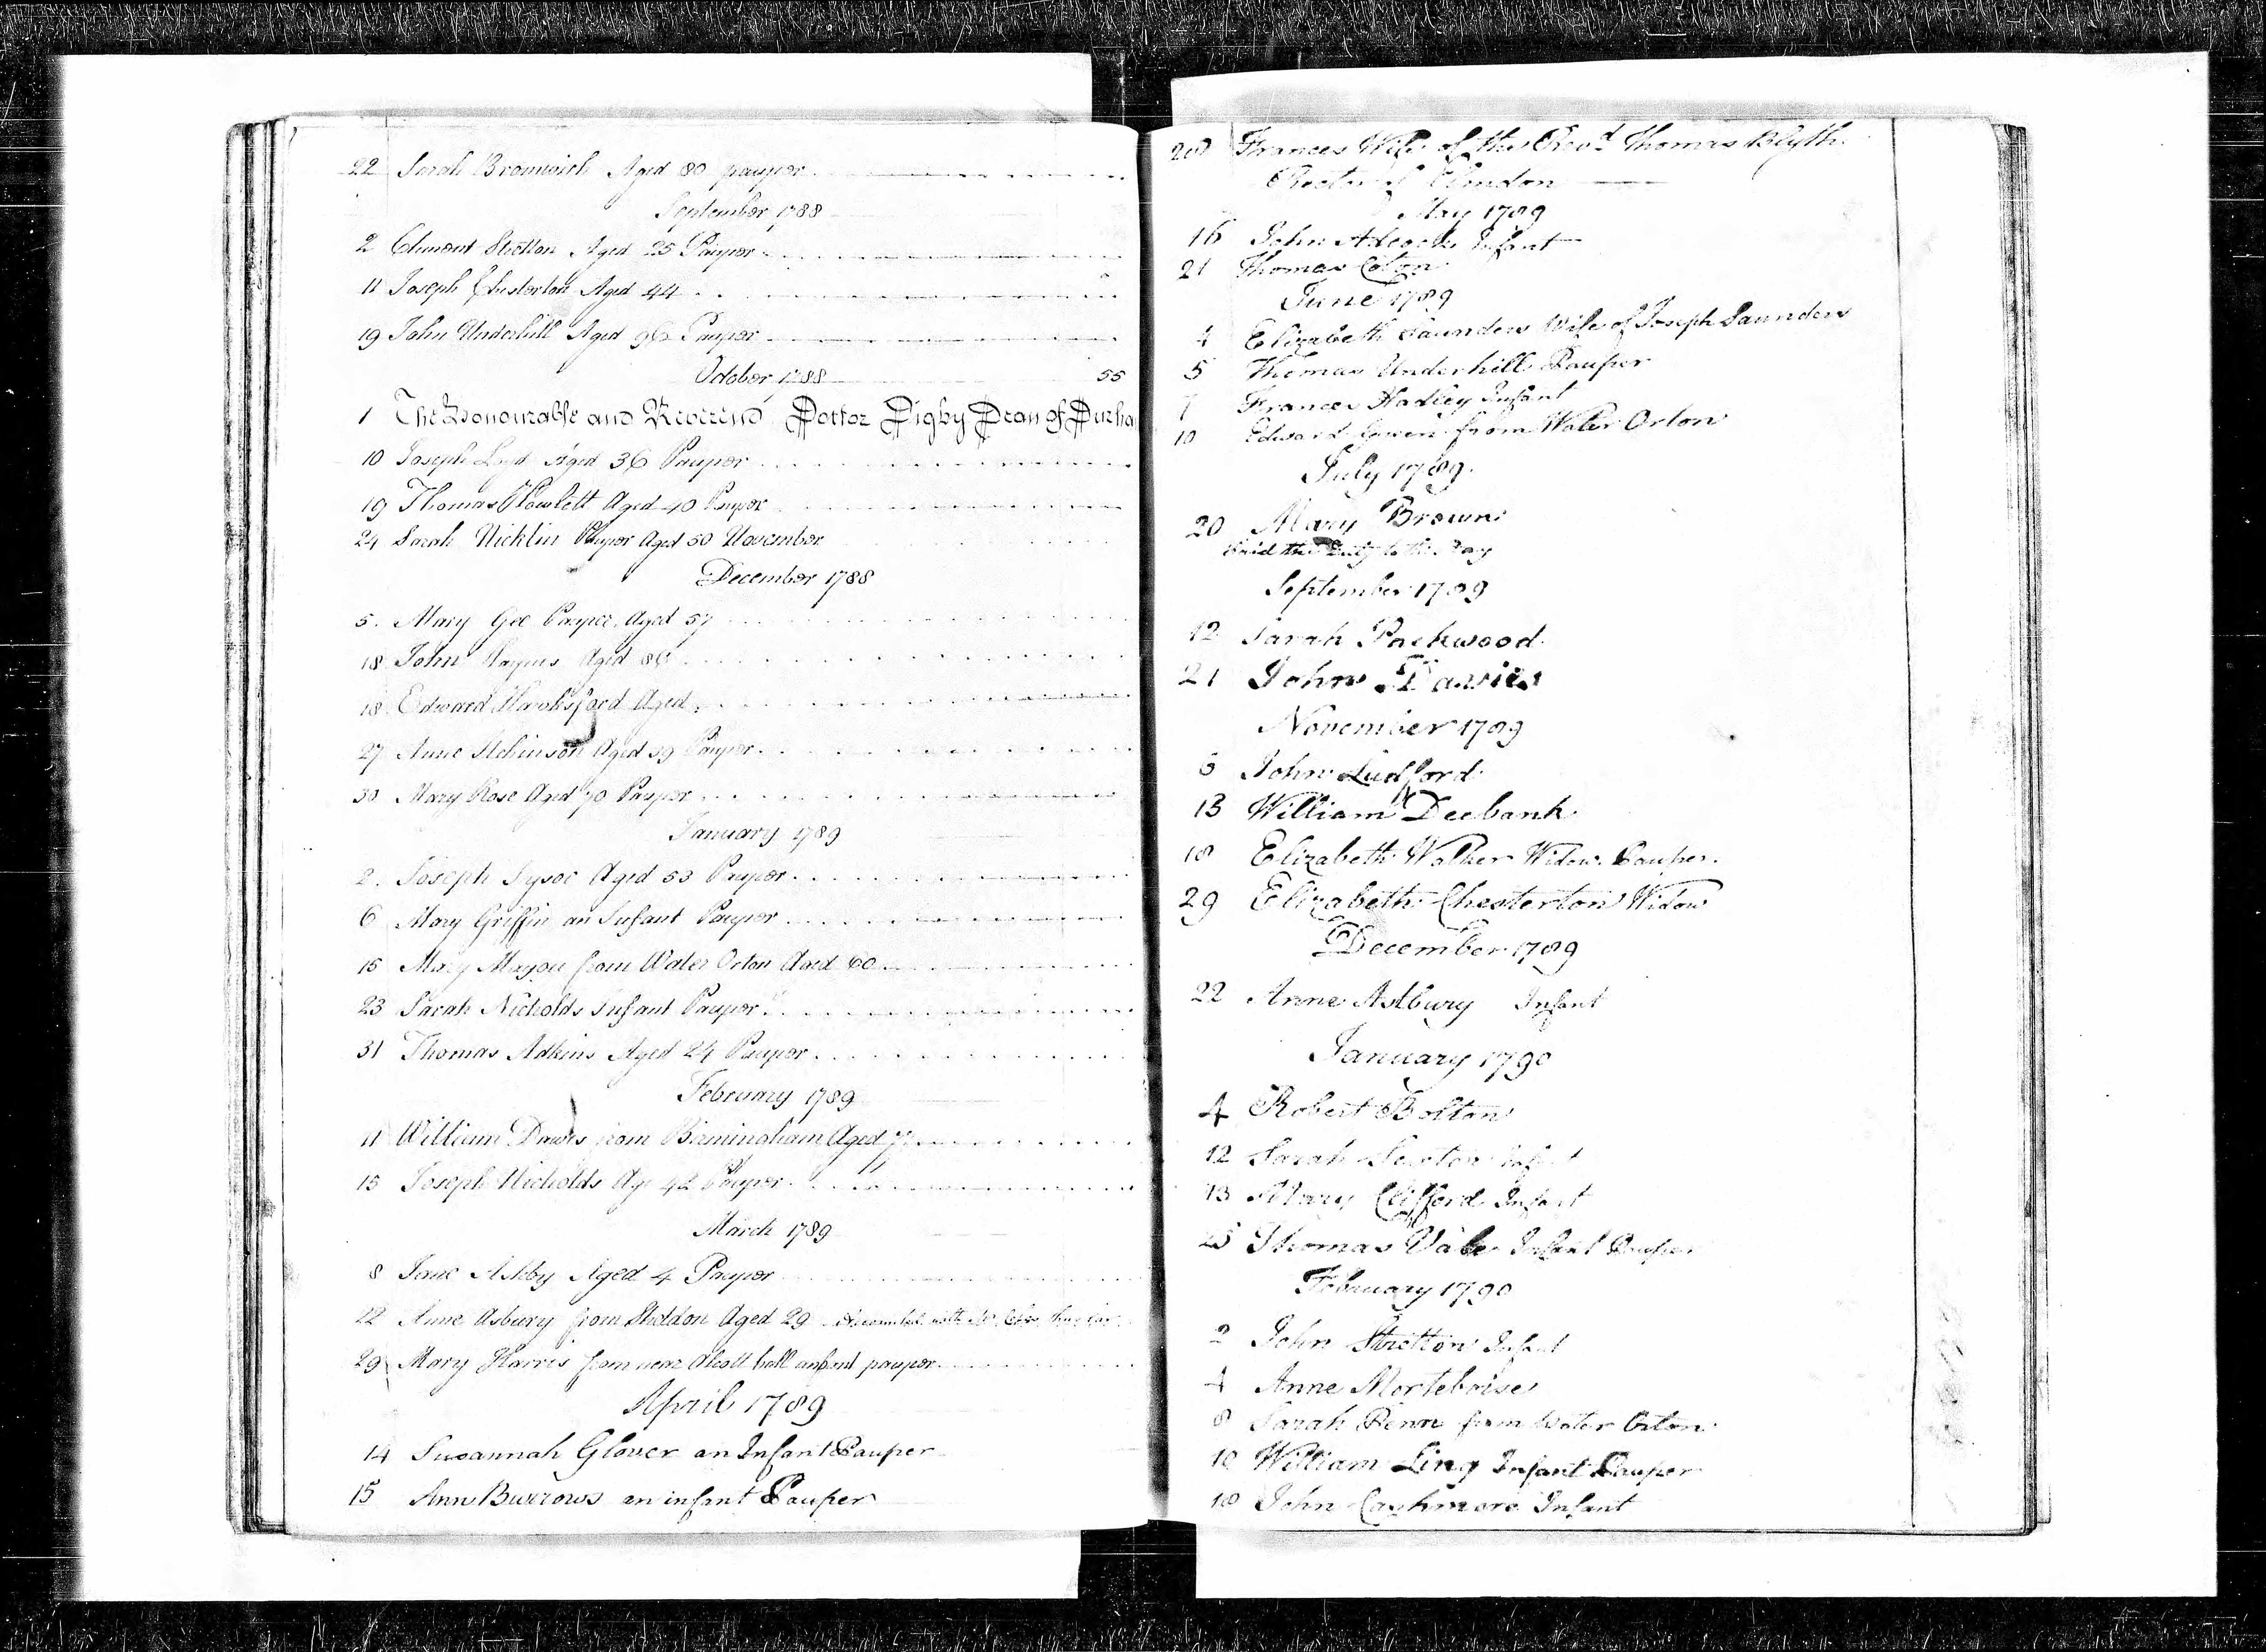 22 Sarah Bromwich Aged 80 pauper
September 1788
2 Clement Stretton Aged 25 Pauper
11 Joseph Chesterton Aged 44
19 John Underhill Aged 96 Pauper
October 1788 55
1 The Honourable and Reverend Doctor Digby Dean of Durha
10 Joseph Loyd Aged 36 Pauper
19 Thomas Howlett Aged 40 Pauper
24 Sarah Nicklin Pauper Aged 50 November
December 1788
5. Mary Gee Pauper Aged 57
18 John Haynes Aged 86
18 Edward Hawksford Aged
27 Anne Atchinson Aged 59 Pauper
30 Mary Rose Aged 70 Pauper
January 1789
2. Joseph Tysoe Aged 53 Pauper
6 Mary Griffin an Infant Pauper
15 Mary Mayou from Water Orton Aged 60
23 Sarah Nicholds Infant Pauper
31 Thomas Adkins Aged 24 Pauper
February 1789
11 William Dawes from Birmingham Aged
15 Joseph Nicholds Age 42 Pauper
March 1789
8 Jane Ashby Aged 4 Pauper
22 Anne Asbury from Sheldon Aged 29
29 Mary Harris from near Alcott hall infant pauper
April 1789
14 Susannah Glover an Infant Pauper
15 Ann Burrows an infant Pauper
20 Frances Wife of the Revd Thomas Blyth
Rector of Elmdon
May 1789
16 John Adcock Infant
21 Thomas Coton
June 1789
4 Elizabeth Saunders Wife of Joseph Saunders
5 Thomas Underhill Pauper
7 Frances Hadley Infant
10 Edward from Water Orton
July 1789
20 Mary Brown
Paid the Duty to the Day
September 1789
12 Sarah Packwood
21 John Davies
November 1789
6 John Ludford
13 William Deebank
18 Elizabeth Walker Widow Pauper
29 Elizabeth Chesterton Widow
December 1789
22 Anne Astbury Infant
January 1790
4 Robert Bolton
12 Sarah Infant
13 Mary Clifford Infant
25 Thomas Vale Infant Pauper
February 1790
2 John Stretton Infant
4 Anne Morteboise
8 Sarah Penn from Water Orton
10 William Ling Infant Pauper
18 John Cashmore Infant